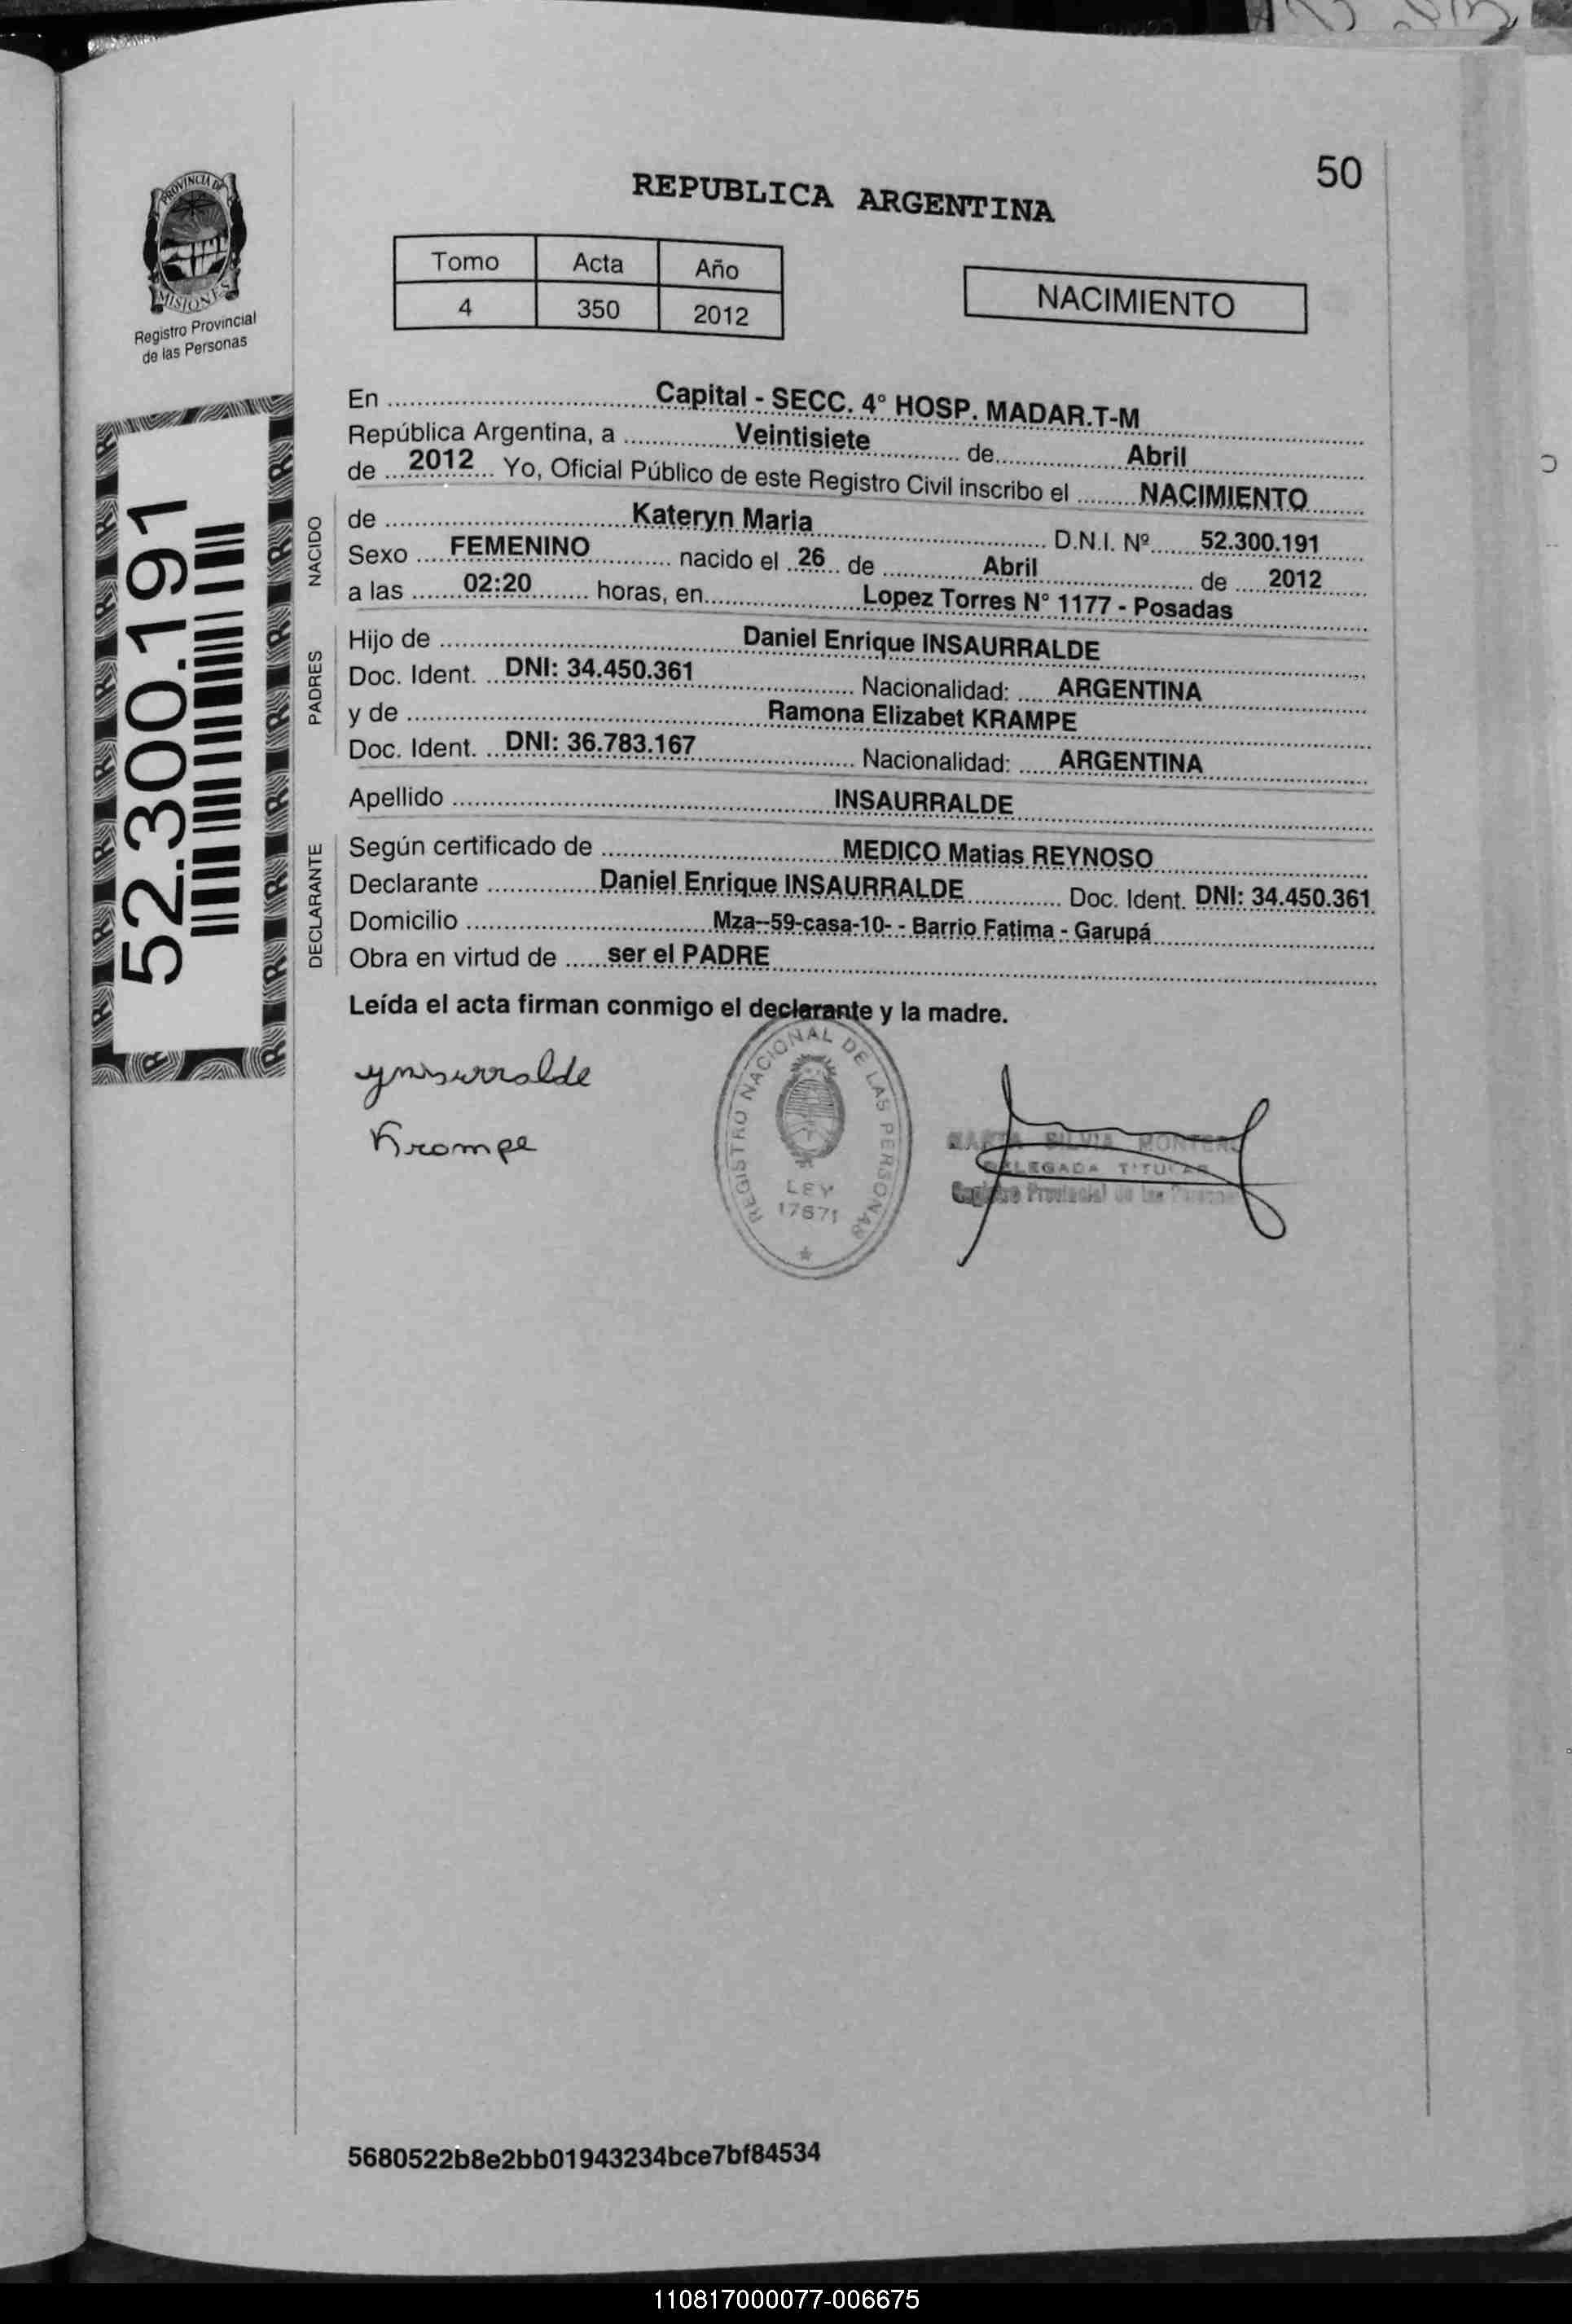 50
REPUBLICA ARGENTINA
PROVINCIA DE
MISIONES
Registro Provincial
de las Personas
Tomo Acta Año
4 350 2012
NACIMIENTO
52.300.191
En Capital - SECC. 4° HOSP. MADAR.T-M
República Argentina, a Veintisiete de Abril
de 2012 Yo, Oficial Público de este Registro Civil inscribo el NACIMIENTO
NACIDO
de Kateryn Maria D.N.I. Nº 52.300.191
Sexo FEMENINO nacido el 26 de Abril de 2012
a las 02:20 horas, en Lopez Torres N° 1177 - Posadas
PADRES
Hijo de Daniel Enrique INSAURRALDE
Doc. Ident. DNI: 34.450.361 Nacionalidad: ARGENTINA
y de Ramona Elizabet KRAMPE
Doc. Ident. DNI: 36.783.167 Nacionalidad: ARGENTINA
Apellido INSAURRALDE
DECLARANTE
Según certificado de MEDICO Matias REYNOSO
Declarante Daniel Enrique INSAURRALDE Doc. Ident. DNI: 34.450.361
Domicilio Mza--59-casa-10- - Barrio Fatima - Garupá
Obra en virtud de ser el PADRE
Leída el acta firman conmigo el declarante y la madre.
Krampe
REGISTRO NACIONAL DE LAS PERSONAS
LEY
17671
SILVIA
DELEGADA TITULAR
Registro Provincial de las Personas
5680522b8e2bb01943234bce7bf84534
110817000077-006675